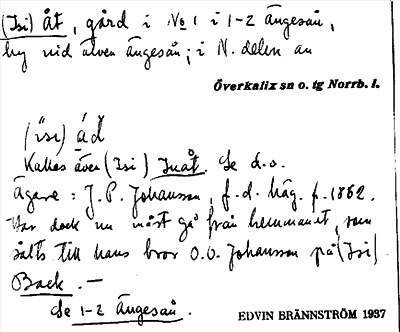 (Isi) Åt, gård i No 1 i 1-2 Ängesån,
by vid älven Ängesån; i N. delen av
Överkalix sn o. tg Norrb. l.
(isi) åd
Kallas även (Isi) Inåt. Se d.o.
Ägare: J. P. Johansson, f.d. häg. f. 1862.
Har dock nu måst gå från hemmanet, som
sålts till hans bror O.O. Johansson på (Isi)
Back. —
Se 1-2 Ängesån.
EDVIN BRÄNNSTRÖM 1937